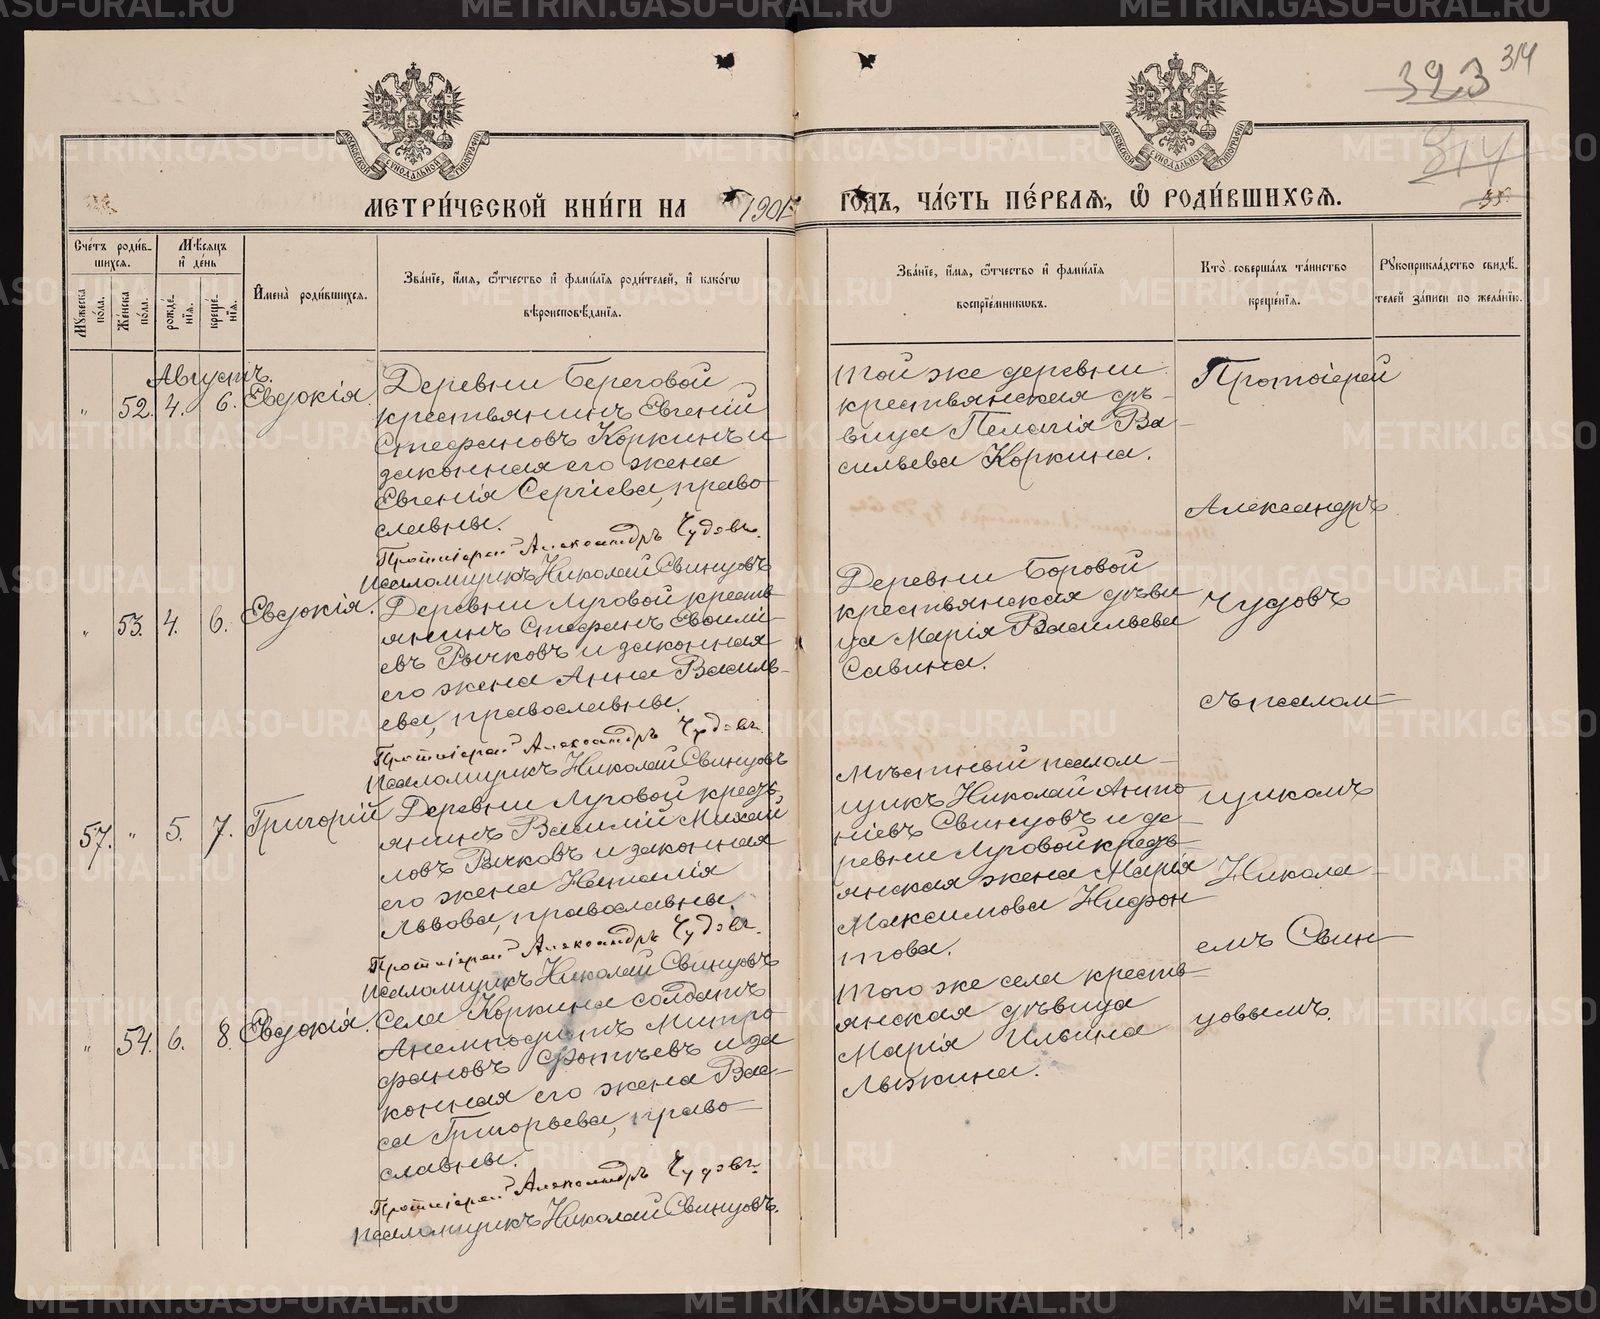 323 314
314
МЕТРИ́ЧЕСКОЙ КНИ́ГИ НА 1901 ГОДЪ, ЧА́СТЬ ПЕ́РВАѦ, Ѡ҆ РОДИ́ВШИХСѦ.
Сче́тъ роди́в-
шихсѧ.
Мꙋ́жеска по́ла.
Же́нска по́ла.
Мѣ́сѧцъ и҆ де́нь
рожде́нїѧ.
креще́нїѧ.
И҆мена̀ роди́вшихсѧ.
Зва́нїе, и҆́мѧ, ѻ҆́тчество и҆ фами́лїѧ роди́телей, и҆ како́гѡ
вѣроисповѣ́данїѧ.
Зва́нїе, и҆́мѧ, ѻ҆́тчество и҆ фами́лїѧ
воспрїе́мникѡвъ.
Кто̀ соверша́лъ та́инство
креще́нїѧ.
Рꙋкоприкла́дство свидѣ́-
телей за́писи по жела́нїю.
Августъ.
" 52. 4. 6. Евдокія.
Деревни Береговой
крестьянинъ Евгеній
Стефановъ Коркинъ и
законная его жена
Евгенія Сергіева, право
славные.
Протоіерей Александръ Чудовъ.
Псаломщикъ Николай Свинцовъ
той же деревни
крестьянская дѣ-
вица Пелагія Ва
сильева Коркина.
" 53. 4. 6. Евдокія.
Деревни Луговой кресть
янинъ Стефанъ Евсилі
евъ Рычковъ и законная
его жена Анна Василь-
ева, православные.
Протоіерей Александръ Чудовъ.
Псаломщикъ Николай Свинцовъ
Деревни Боровой
крестьянская дѣви
ца Марія Васильева
Савина.
57. " 5. 7. Григорій
Деревни Луговой кресть
янинъ Василій Михай
ловъ Рычковъ и законная
его жена Наталія
Львова, православные.
Протоіерей Александръ Чудовъ.
Псаломщикъ Николай Свинцовъ
Мѣстный псалом-
щикъ Николай Анто
ніевъ Свинцовъ и де-
ревни Луговой кресть-
янская жена Марія
Максимова Нифон
това.
" 54. 6. 8. Евдокія.
Села Коркина солдатъ
Анемподистъ Митро
фановъ Фотѣевъ и за
конная его жена Вас-
са Григорьева, право-
славные.
Протоіерей Александръ Чудовъ.
Псаломщикъ Николай Свинцовъ.
Того же села кресть
янская дѣвица
Марія Ильина
Лыжина.
Протоіерей
Александръ
Чудовъ
съ псалом-
щикомъ
Никола-
емъ Свин-
цовымъ.
METRIKI.GASO-URAL.RU